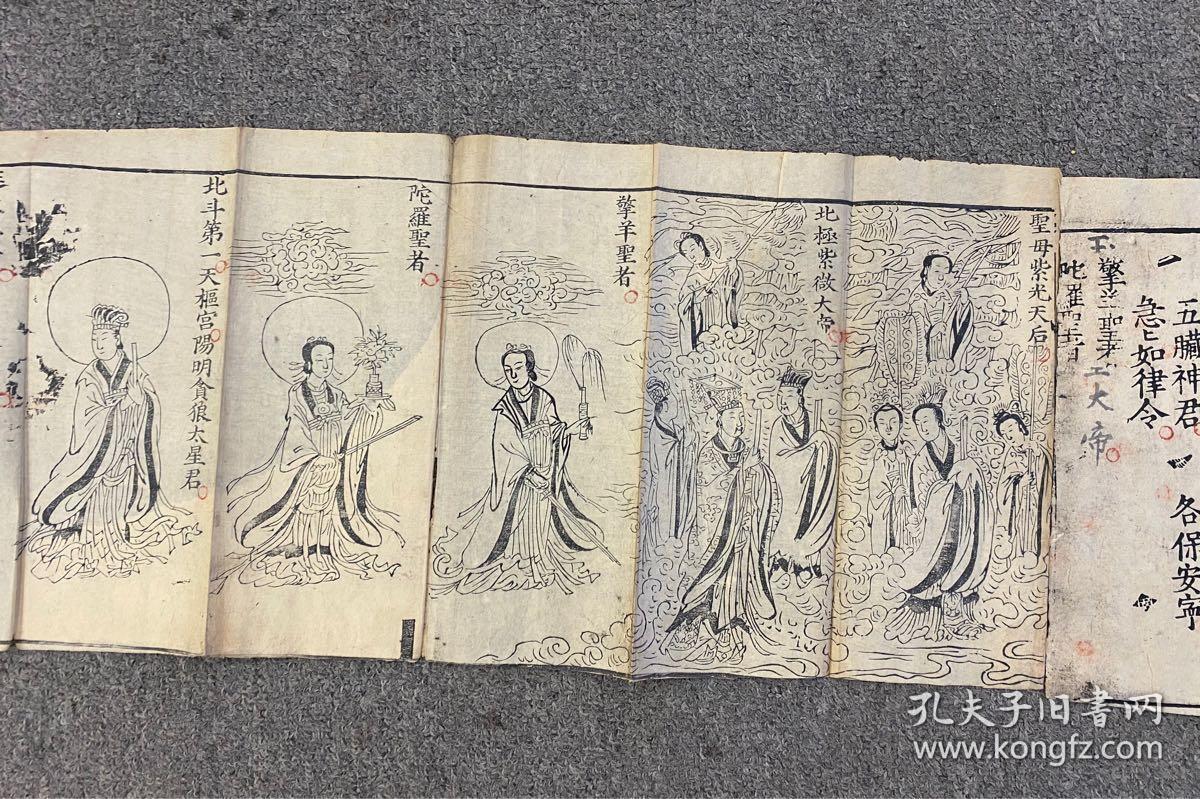 五臟神君 各保安寧
急急如律令
大帝
聖母紫光天后
北極紫微大帝
擎羊聖者
陀羅聖者
北斗第一天樞宮陽明貪狼太星君
孔夫子旧书网
www.kongfz.com